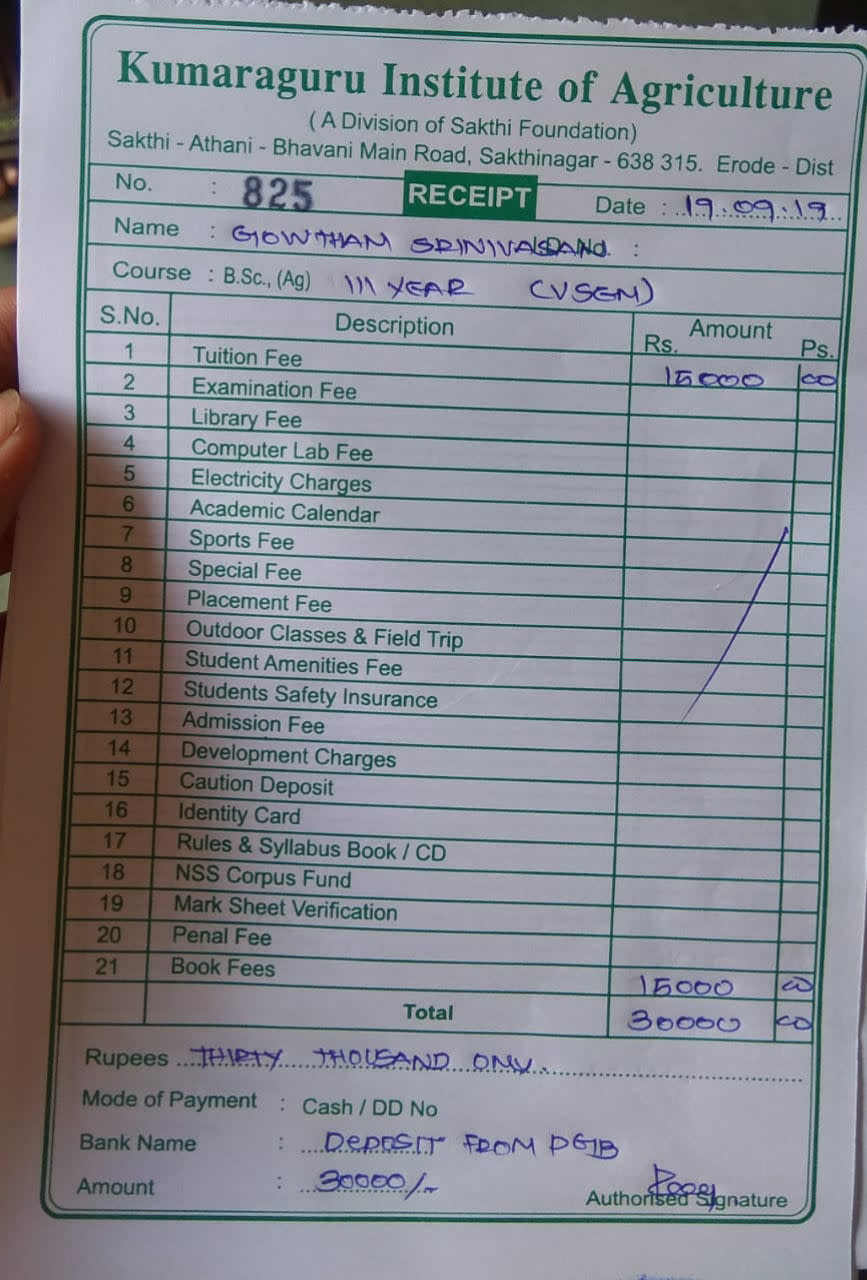 Kumaraguru Institute of Agriculture
( A Division of Sakthi Foundation)
Sakthi - Athani - Bhavani Main Road, Sakthinagar - 638 315. Erode - Dist
No. : 825 RECEIPT Date : 19.09.19
Name : GOWTHAM SRINIVASAN :
Course : B.Sc., (Ag) III YEAR (V SEM)
S.No. Description Amount
Rs. Ps.
1 Tuition Fee 15000 00
2 Examination Fee
3 Library Fee
4 Computer Lab Fee
5 Electricity Charges
6 Academic Calendar
7 Sports Fee
8 Special Fee
9 Placement Fee
10 Outdoor Classes & Field Trip
11 Student Amenities Fee
12 Students Safety Insurance
13 Admission Fee
14 Development Charges
15 Caution Deposit
16 Identity Card
17 Rules & Syllabus Book / CD
18 NSS Corpus Fund
19 Mark Sheet Verification
20 Penal Fee
21 Book Fees 15000 00
Total 30000 00
Rupees THIRTY THOUSAND ONLY.
Mode of Payment : Cash / DD No
Bank Name : DEPOSIT FROM
Amount : 30000/-
Authorised Signature